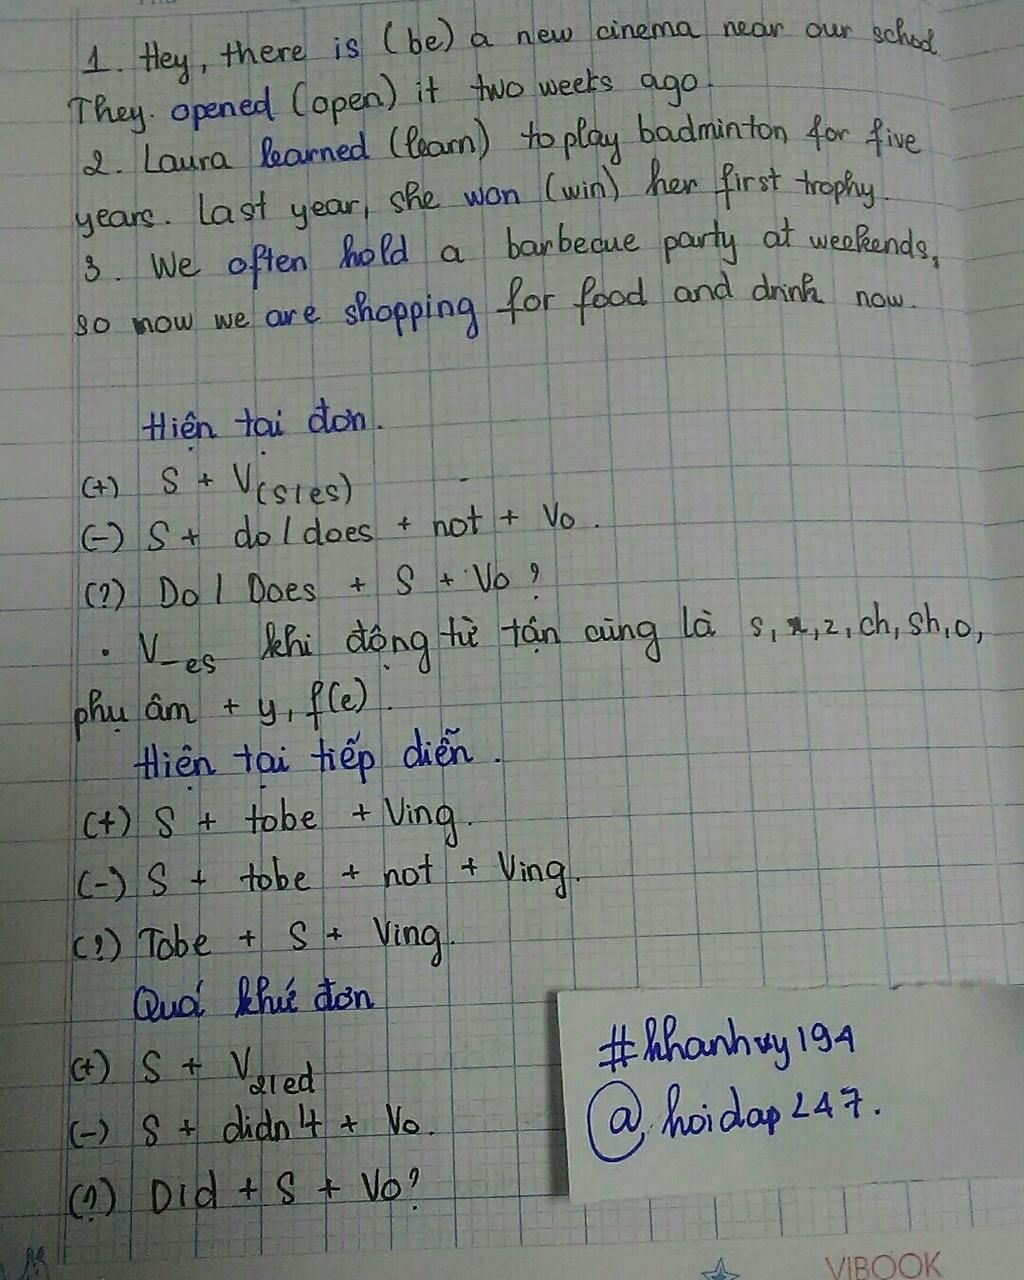 1. Hey, there is (be) a new cinema near our school
They. opened (open) it two weeks ago.
2. Laura learned (learn) to play badminton for five
years. Last year, she won (win) her first trophy.
3. We often hold a barbecue party at weekends,
so now we are shopping for food and drink now.
Hiện tại đơn.
(+) S + V(s/es)
(-) S + do/does + not + Vo.
(?) Do/Does + S + Vo?
. V_es khi động từ tận cùng là s, x, z, ch, sh, o,
phụ âm + y, f(e).
Hiện tại tiếp diễn.
(+) S + tobe + Ving.
(-) S + tobe + not + Ving.
(?) Tobe + S + Ving.
Quá khứ đơn
(+) S + V2/ed
(-) S + didn't + Vo.
(?) Did + S + Vo?
#khanhvy194
@hoidap247.
VIBOOK